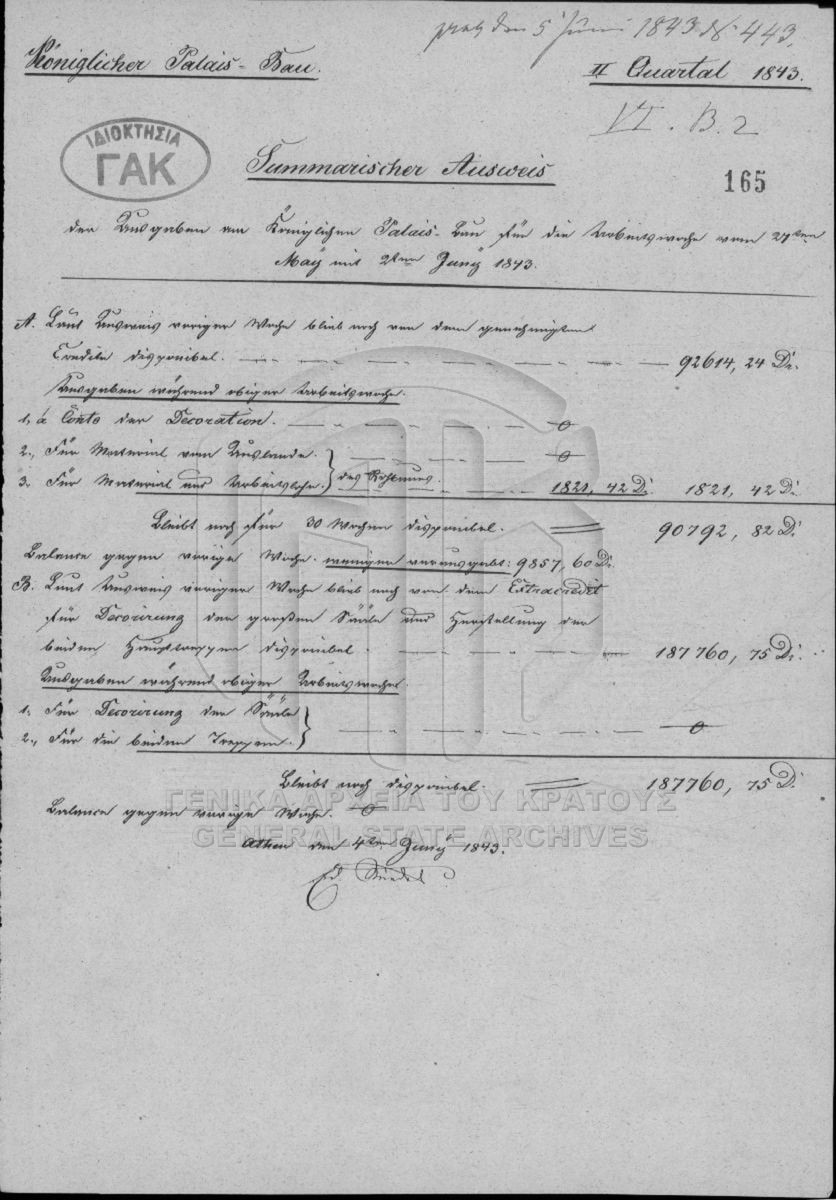 den 5 Juni 1843 № 443.
Königlicher Palais-Bau.
II Quartal 1843.
VI. B. 2
ΙΔΙΟΚΤΗΣΙΑ
ΓΑΚ
Summarischer Ausweis
165
der Ausgaben am Königlichen Palais-Bau für die Arbeitswoche vom 27ten
May mit 2ten Juny 1843.
A. Laut Ausweis voriger Woche blieb noch von dem genehmigten
Credite disponibel. 92614, 24 Dr.
Ausgaben während obiger Arbeitswoche.
1, à Conto der Decoration. 0
2., Für Material vom Auslande. 0
3. Für Material und Arbeitslohn. des Rohbaues. 1821, 42 Dr. 1821, 42 Dr.
Bleibt noch für 30 Wochen disponibel. 90792, 82 Dr.
Balance gegen vorige Woche. weniger verausgabt: 9857, 60 Dr.
B. Laut Ausweis voriger Woche blieb noch von dem Extracredit
für Decorirung der großen Sääle und Herstellung der
beiden Haupttreppen disponibel. 187760, 75 Dr.
Ausgaben während obiger Arbeitswoche.
1. Für Decorirung der Sääle
2., Für die beiden Treppen. 0
Bleibt noch disponibel. 187760, 75 Dr.
ΓΕΝΙΚΑ ΑΡΧΕΙΑ ΤΟΥ ΚΡΑΤΟΥΣ
Balance gegen vorige Woche. 0
GENERAL STATE ARCHIVES
Athen den 4ten Juny 1843.